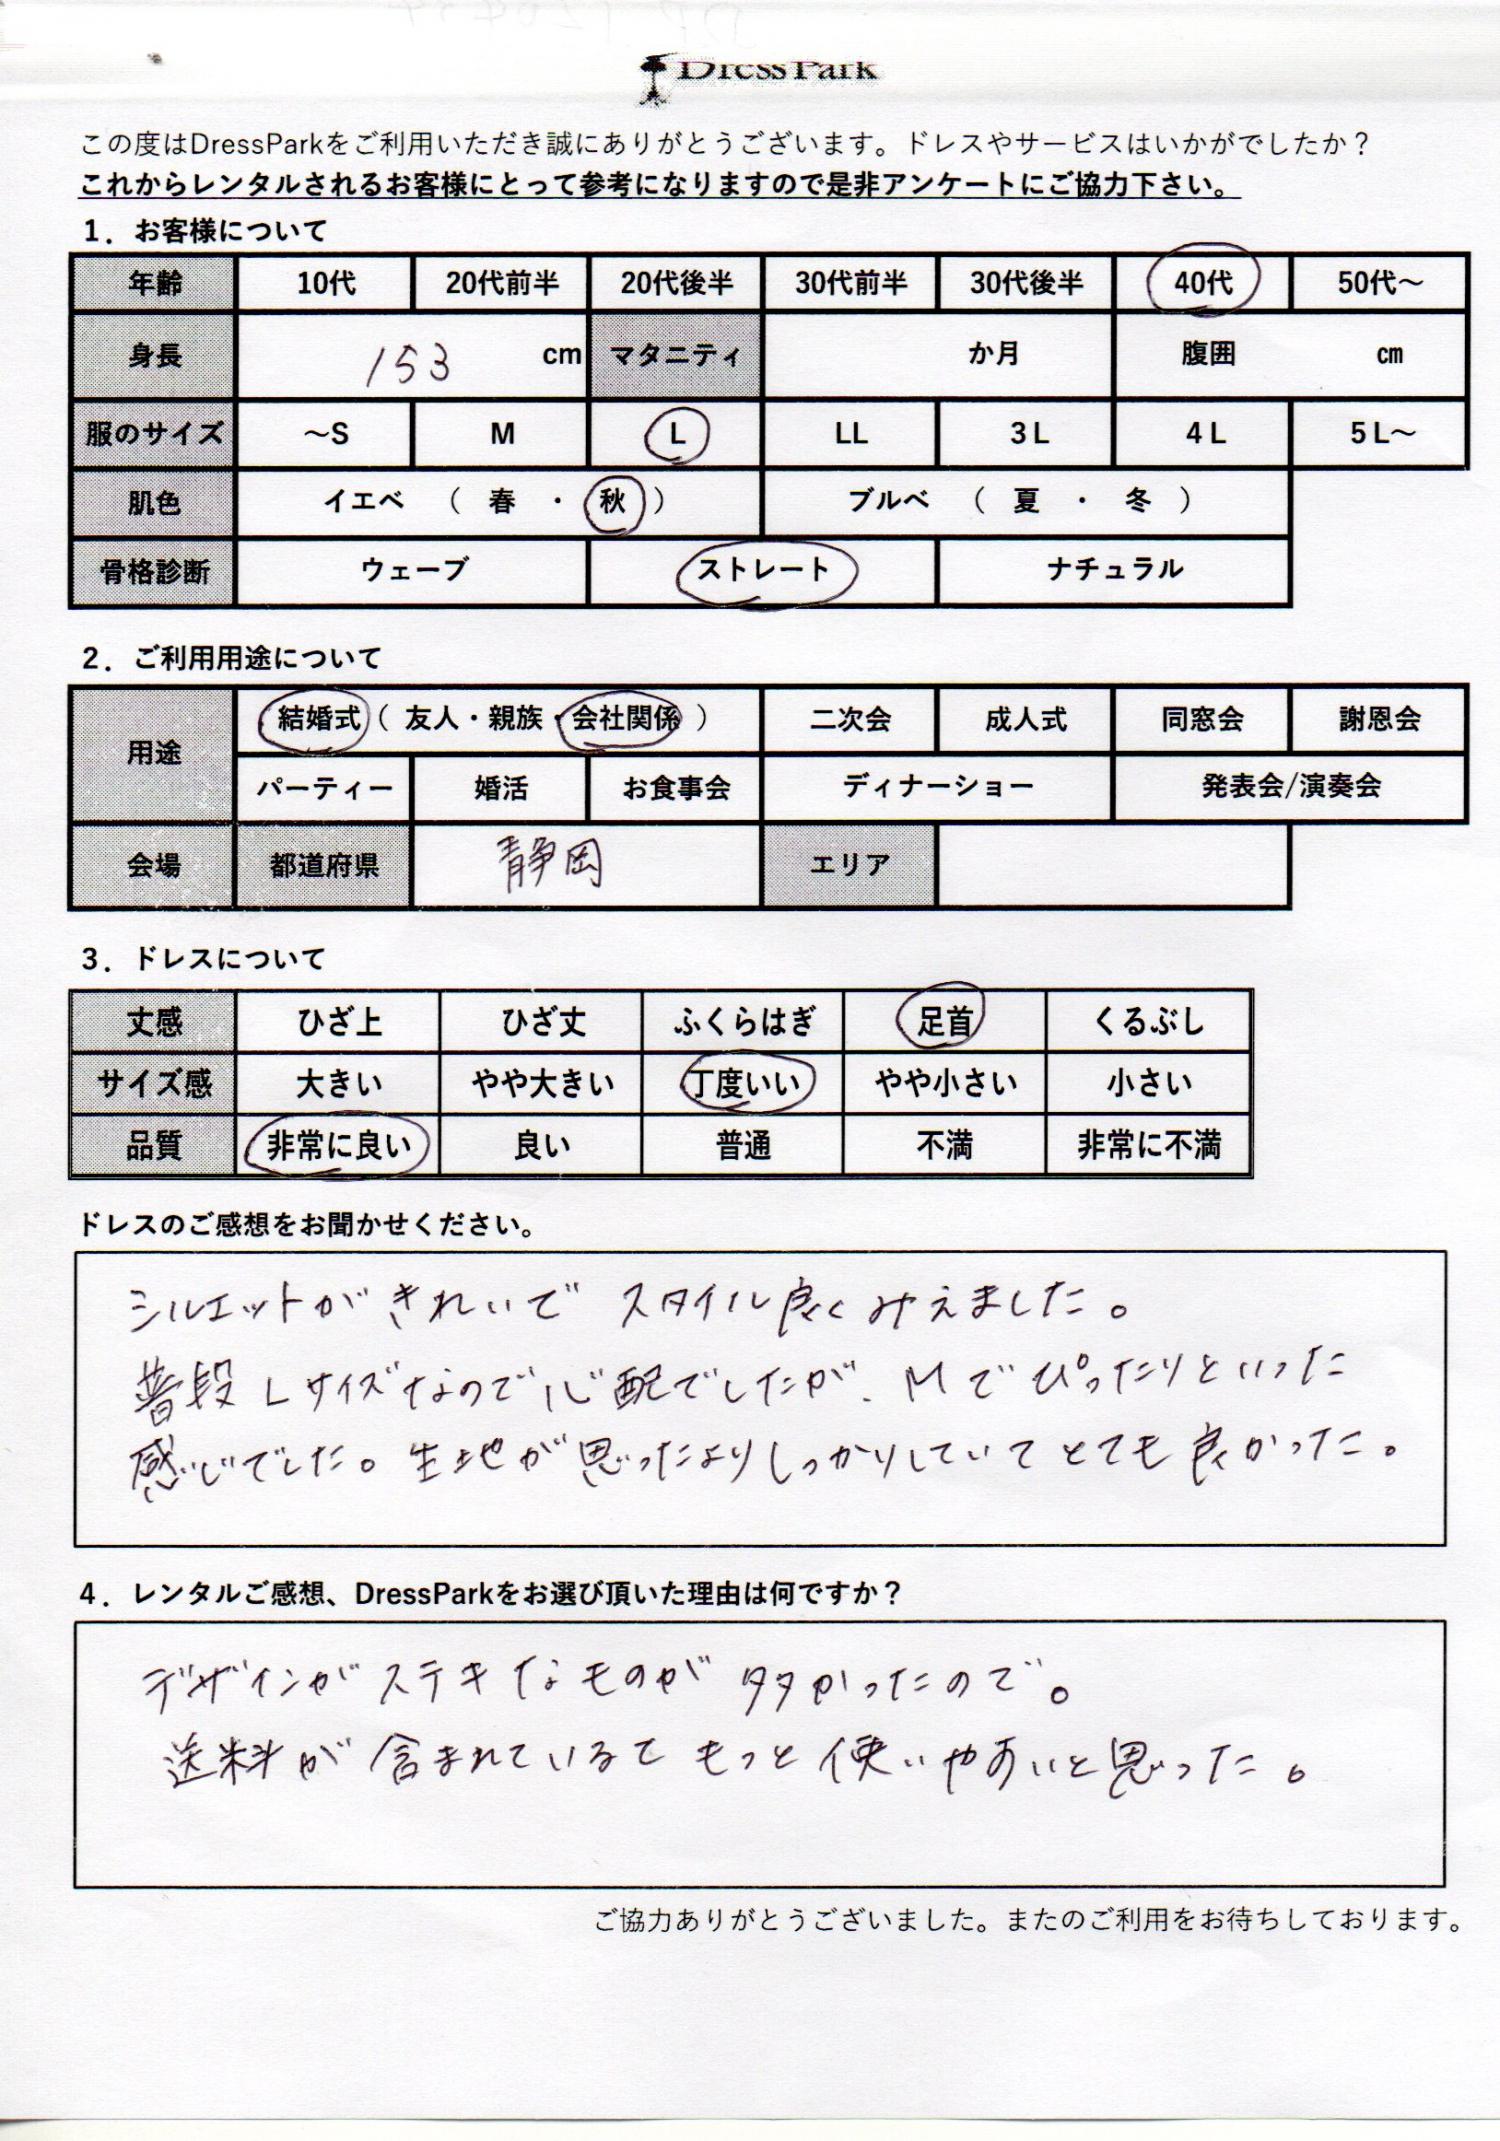 DressPark
この度はDressParkをご利用いただき誠にありがとうございます。ドレスやサービスはいかがでしたか？
これからレンタルされるお客様にとって参考になりますので是非アンケートにご協力下さい。
1．お客様について
年齢 10代 20代前半 20代後半 30代前半 30代後半 40代 50代～
身長 153 cm マタニティ か月 腹囲 cm
服のサイズ ～S M L LL 3L 4L 5L～
肌色 イエベ （ 春 ・ 秋 ） ブルベ （ 夏 ・ 冬 ）
骨格診断 ウェーブ ストレート ナチュラル
2．ご利用用途について
用途 結婚式（ 友人・親族・会社関係 ） 二次会 成人式 同窓会 謝恩会
パーティー 婚活 お食事会 ディナーショー 発表会/演奏会
会場 都道府県 静岡 エリア
3．ドレスについて
丈感 ひざ上 ひざ丈 ふくらはぎ 足首 くるぶし
サイズ感 大きい やや大きい 丁度いい やや小さい 小さい
品質 非常に良い 良い 普通 不満 非常に不満
ドレスのご感想をお聞かせください。
シルエットがきれいで スタイル良くみえました。
普段Lサイズなので心配でしたが、Mでぴったりといった
感じでした。生地が思ったよりしっかりしていてとても良かった。
4．レンタルご感想、DressParkをお選び頂いた理由は何ですか？
デザインがステキなものが多かったので。
送料が含まれているともっと使いやすいと思った。
ご協力ありがとうございました。またのご利用をお待ちしております。